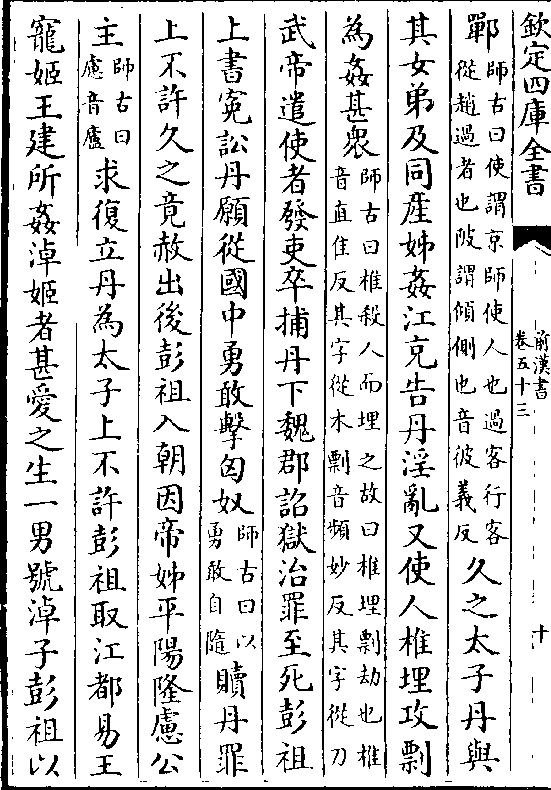 欽定四庫全書
前漢書
卷五十三
十
鄲師古曰使謂京師使人也過客行客從趙過者也陂謂傾側也音彼義反久之太子丹與
其女弟及同産姊姦江充告丹淫亂又使人椎埋攻剽
為姦甚衆師古曰椎殺人而埋之故曰椎埋剽劫也椎音直隹反其字從木剽音頻妙反其字從刀
武帝遣使者發吏卒捕丹下魏郡詔獄治罪至死彭祖
上書寃訟丹願從國中勇敢擊匈奴師古曰以勇敢自隨贖丹罪
上不許久之竟赦出後彭祖入朝因帝姊平陽隆慮公
主師古曰慮音廬求復立丹為太子上不許彭祖取江都易王
寵姬王建所姦淖姬者甚愛之生一男號淖子彭祖以